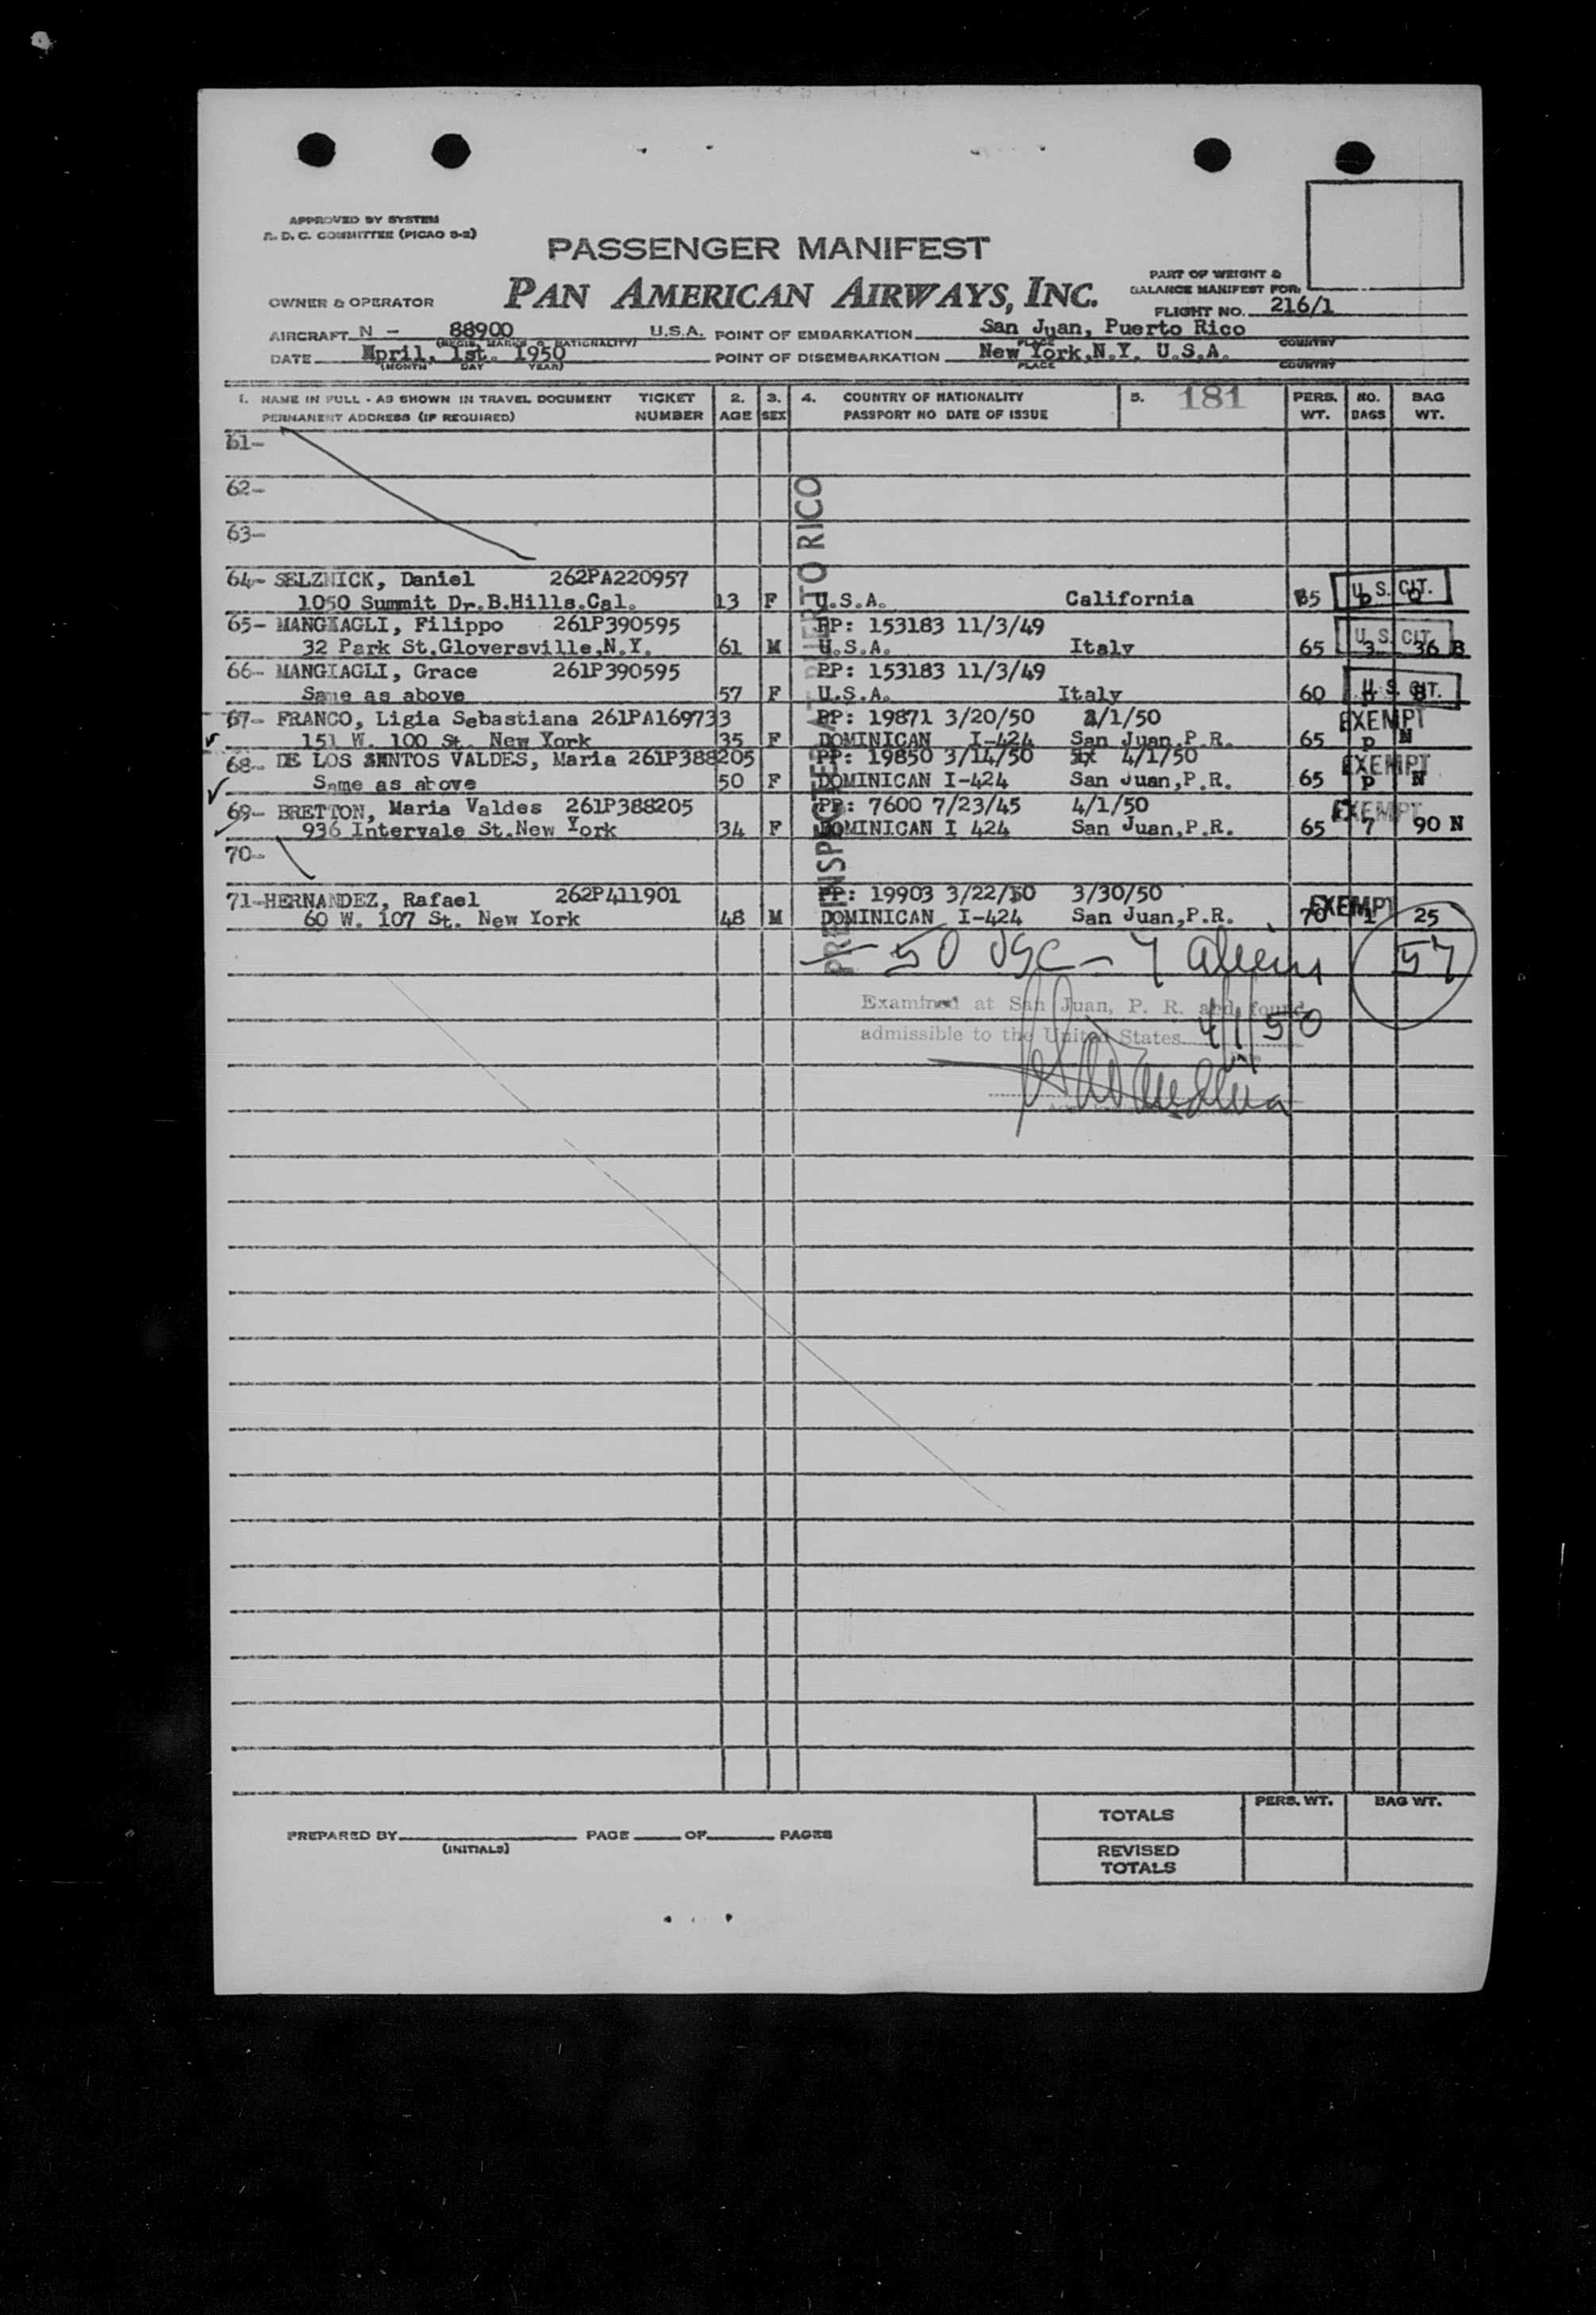 APPROVED BY SYSTEM
R. D. C. COMMITTEE (PICAO S-2)
PASSENGER MANIFEST
OWNER & OPERATOR PAN AMERICAN AIRWAYS, INC.
PART OF WEIGHT &
BALANCE MANIFEST FOR:
FLIGHT NO. 216/1
AIRCRAFT N - 88900 U.S.A. POINT OF EMBARKATION San Juan, Puerto Rico
(REGIS. MARKS & NATIONALITY) PLACE COUNTRY
DATE April, 1st. 1950 POINT OF DISEMBARKATION New York,N.Y. U.S.A.
(MONTH DAY YEAR) PLACE COUNTRY
1. NAME IN FULL - AS SHOWN IN TRAVEL DOCUMENT TICKET 2. 3. 4. COUNTRY OF NATIONALITY 5. 181 PERS. NO. BAG
PERMANENT ADDRESS (IF REQUIRED) NUMBER AGE SEX PASSPORT NO DATE OF ISSUE WT. BAGS WT.
61-
62-
63-
PRE-INSPECTED AT PUERTO RICO
64- SELZNICK, Daniel 262PA220957
1050 Summit Dr.B.Hills.Cal. 13 F U.S.A. California 85 U.S. CIT.
65- MANGIAGLI, Filippo 261P390595 PP: 153183 11/3/49
32 Park St.Gloversville,N.Y. 61 M U.S.A. Italy 65 3 36 B U.S. CIT.
66- MANGIAGLI, Grace 261P390595 PP: 153183 11/3/49
Same as above 57 F U.S.A. Italy 60 U.S. CIT.
67- FRANCO, Ligia Sebastiana 261PA169733 PP: 19871 3/20/50 4/1/50 EXEMPT
151 W. 100 St. New York 35 F DOMINICAN I-424 San Juan,P.R. 65 p N
68- DE LOS SANTOS VALDES, Maria 261P388205 PP: 19850 3/14/50 4/1/50 EXEMPT
Same as above 50 F DOMINICAN I-424 San Juan,P.R. 65 p N
69- BRETTON, Maria Valdes 261P388205 PP: 7600 7/23/45 4/1/50 EXEMPT
936 Intervale St.New York 34 F DOMINICAN I 424 San Juan,P.R. 65 7 90 N
70-
71-HERNANDEZ, Rafael 262P411901 PP: 19903 3/22/50 3/30/50 EXEMPT
60 W. 107 St. New York 48 M DOMINICAN I-424 San Juan,P.R. 70 1 25
50 USC - 7 aliens 57
Examined at San Juan, P. R. and found
admissible to the United States 4/1/50
TOTALS PERS. WT. BAG WT.
PREPARED BY PAGE OF PAGES
(INITIALS)
REVISED
TOTALS